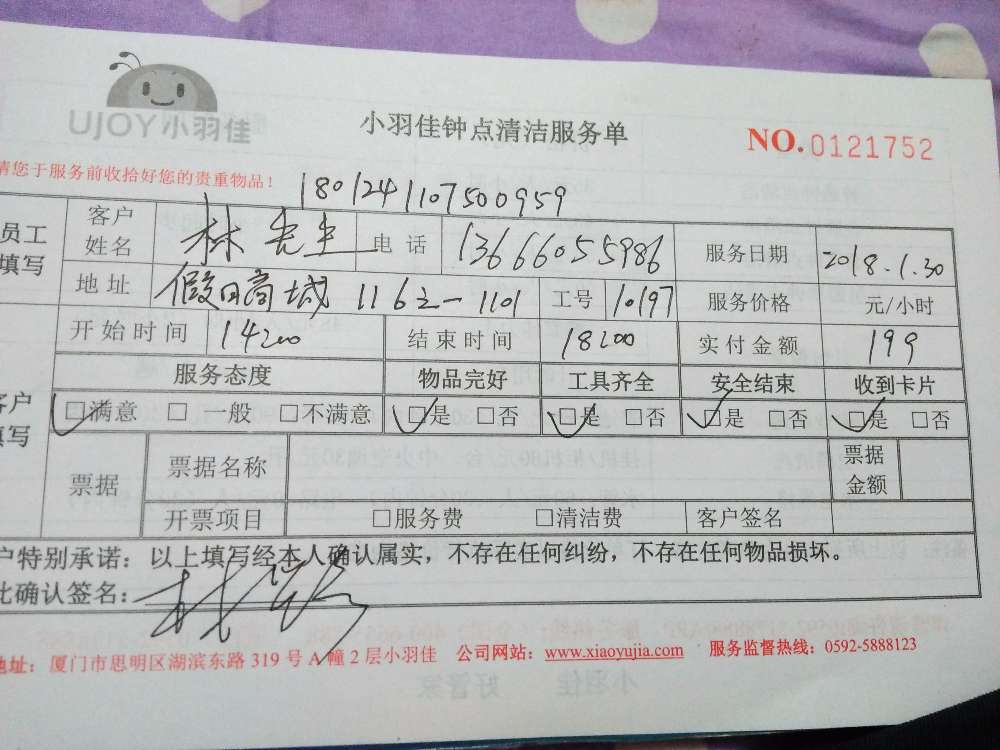 UJOY小羽佳
小羽佳钟点清洁服务单
NO.0121752
请您于服务前收拾好您的贵重物品！
1801241107500959
员工填写 客户姓名 林先生 电话 13666055986 服务日期 2018.1.30
地址 假日商城 1162-1101 工号 10197 服务价格 元/小时
开始时间 14:00 结束时间 18:00 实付金额 199
客户填写 服务态度 物品完好 工具齐全 安全结束 收到卡片
□满意 □一般 □不满意 □是 □否 □是 □否 □是 □否 □是 □否
票据 票据名称 票据金额
开票项目 □服务费 □清洁费 客户签名
户特别承诺：以上填写经本人确认属实，不存在任何纠纷，不存在任何物品损坏。
此确认签名：
地址：厦门市思明区湖滨东路319号A幢2层小羽佳 公司网站：www.xiaoyujia.com 服务监督热线：0592-5888123